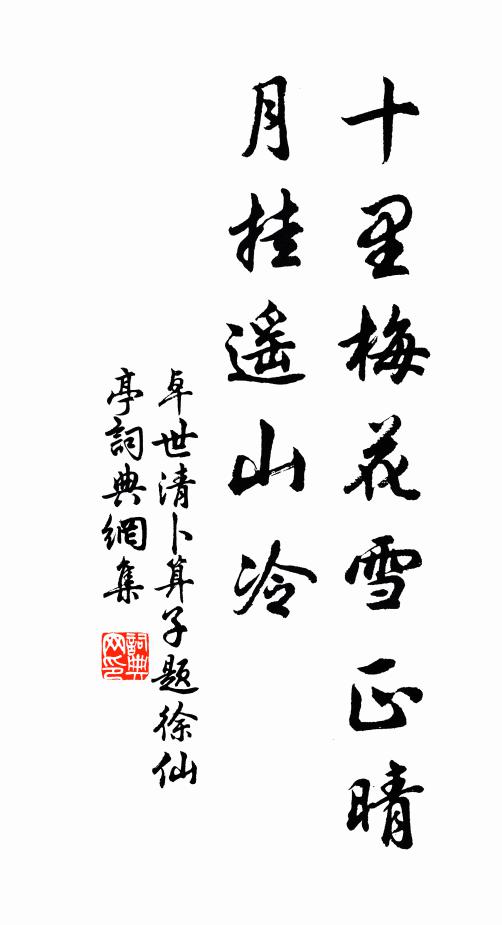 十里梅花雪正晴
月挂遥山冷
卓世清卜算子题徐仙
亭詞典網集
詞典網印